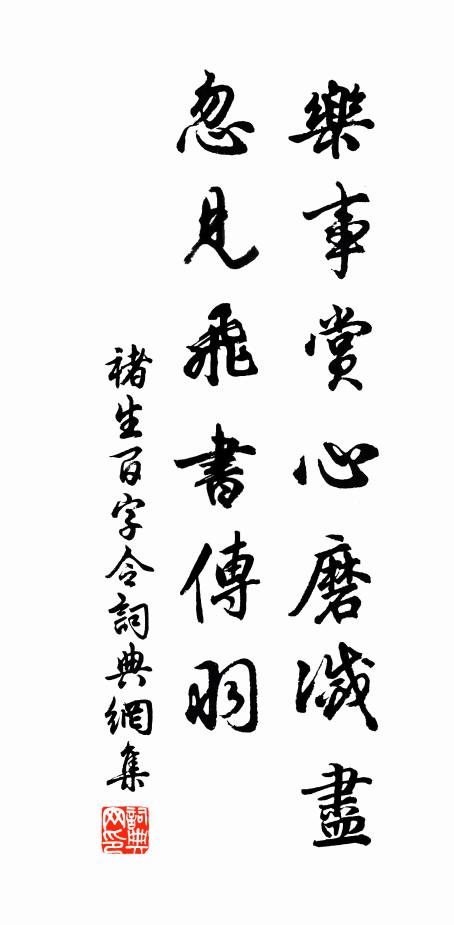 樂事賞心磨滅盡
忽見飛書傳羽
褚生百字令詞典網集
詞典網印